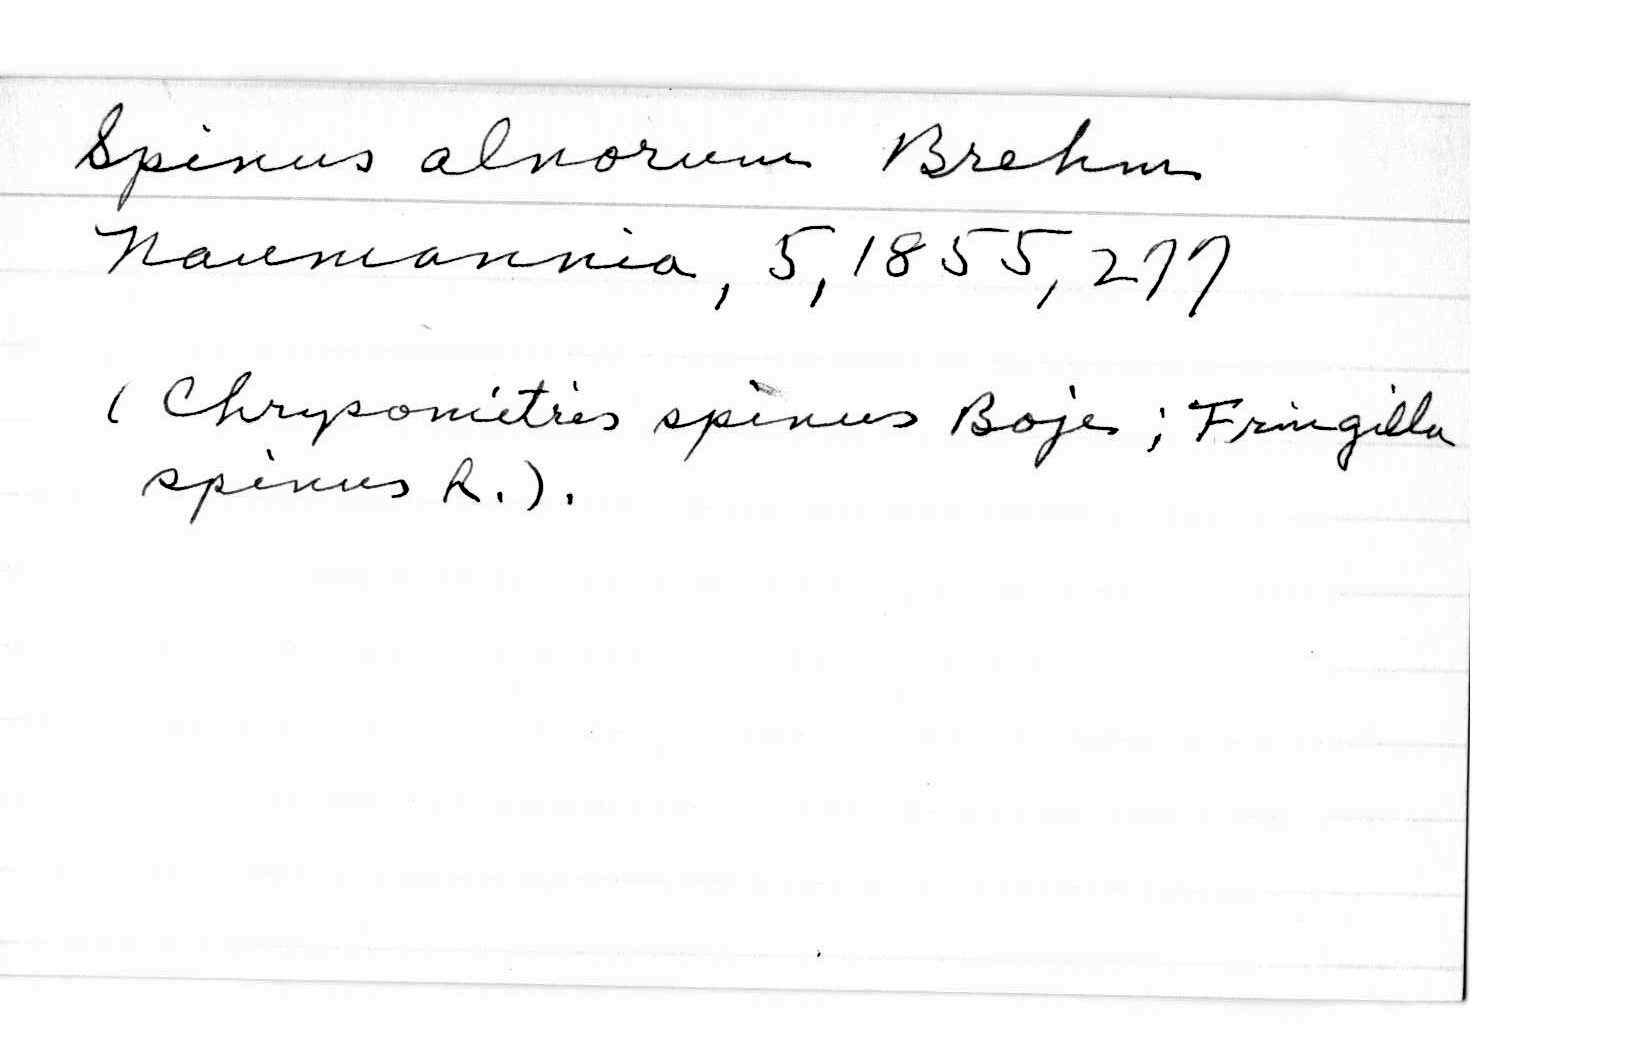 Spinus alnorum Brehm
Naumannia, 5, 1855, 277
( Chrysomitris spinus Boje ; Fringilla
spinus L.).